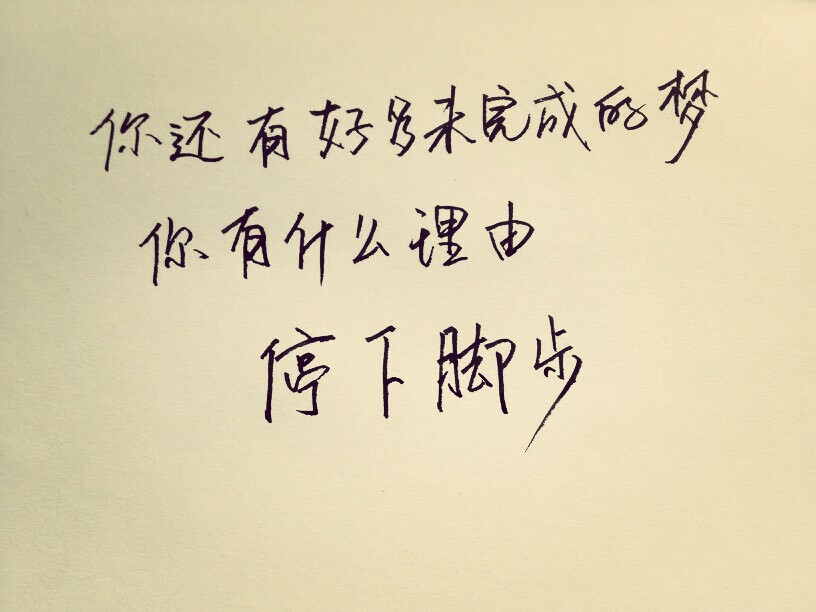 你还有好多未完成的梦
你有什么理由
停下脚步